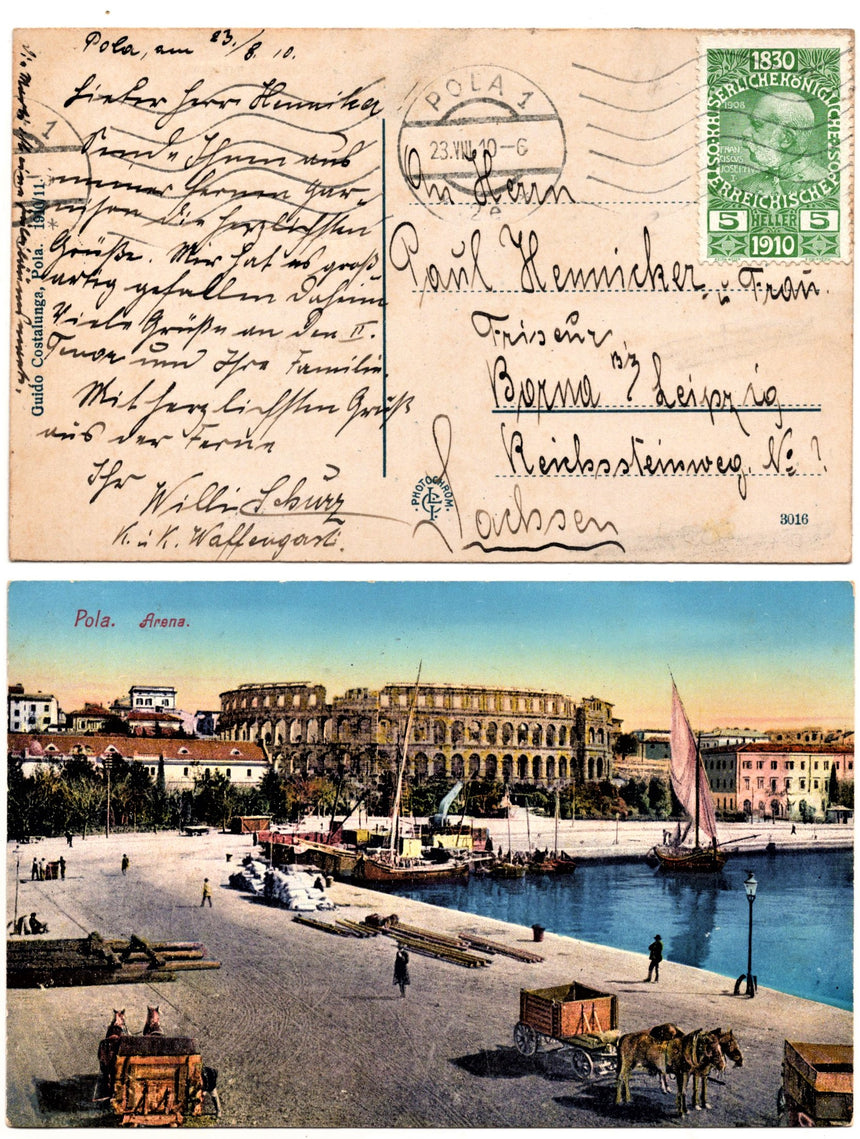 Pola, am 23./8. 10.
Lieber Herr Hennicker
Sende Ihnen aus
meiner fernen Gar-
nison die herzlichsten
Grüße. Mir hat es groß-
artig gefallen daheim
Viele Grüße an den II.
und Ihre Familie.
Mit herzlichsten Gruß
aus der Ferne
Ihr
Willi Schurz
K. u K. Waffengast.
Guido Costalunga, Pola. 1910/11.
1
POLA 1
23.VIII.10-6
2e
1830
KAISERLICHE KÖNIGLICHE
ÖSTERREICHISCHE POST
1908
FRANCISCVS JOSEPH I
5 HELLER 5
1910
An Herrn
Paul Hennicker u Frau.
Friseur
Borna Bz Leipzig
Reichssteinweg. No 7.
Sachsen
PHOTOCHROM
3016
Pola. Arena.